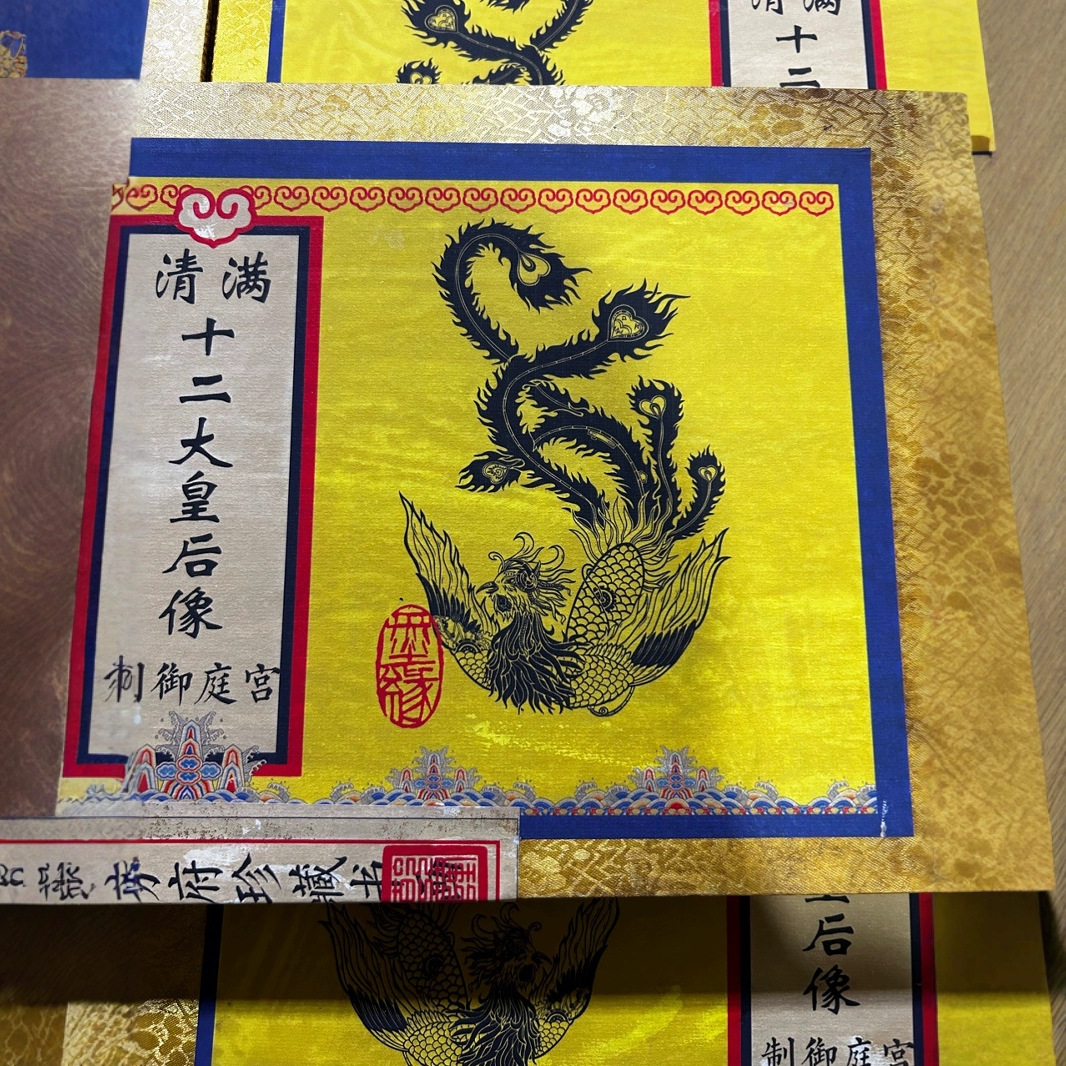 清满
十二
清满
十二大皇后像
制御庭宫
府珍藏书
后像
制御庭宫